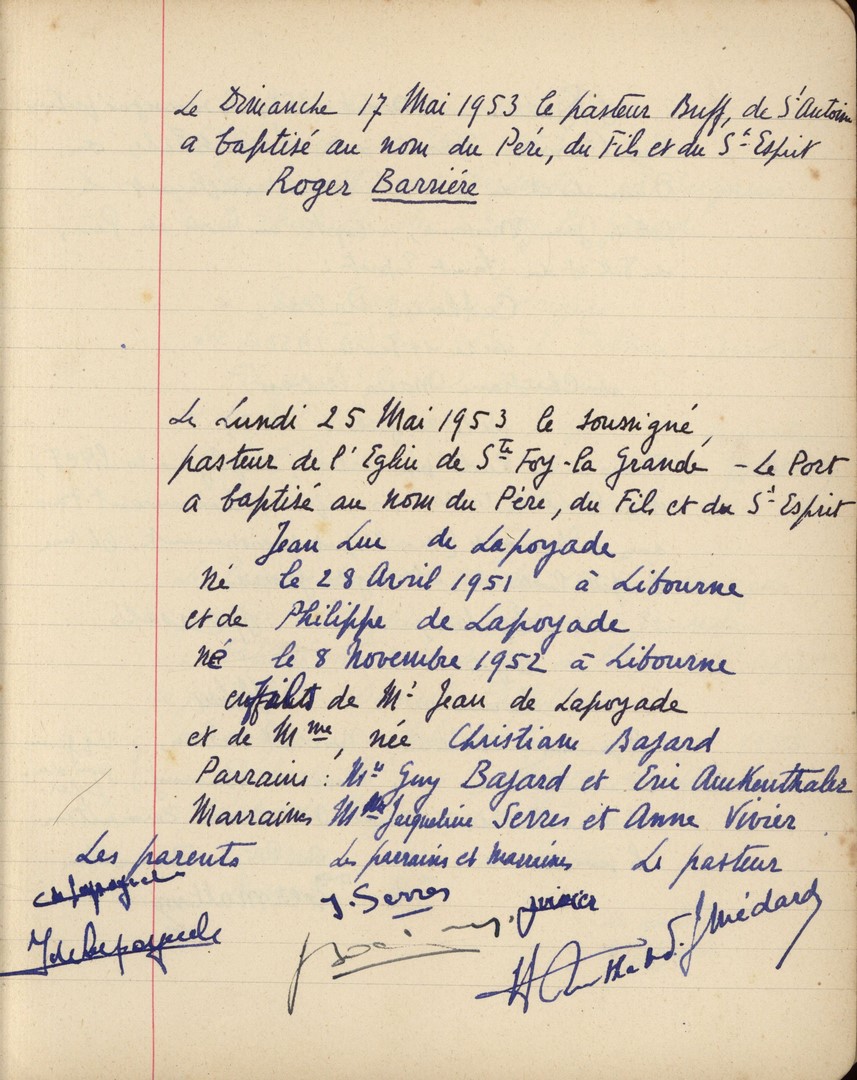 Le Dimanche 17 Mai 1953 le pasteur Buff, de St Antoine
a baptisé au nom du Pére, du Fils et du St Esprit
Roger Barriére
Le Lundi 25 Mai 1953 le soussigné,
pasteur de l'Eglise de Ste Foy-la Grande - Le Port
a baptisé au nom du Pére, du Fils et du St Esprit
Jean Luc de Lapoyade
né le 28 Avril 1951 à Libourne
et de Philippe de Lapoyade
né le 8 Novembre 1952 à Libourne
de Mr Jean de Lapoyade
et de Mme, née Christiane Bajard
Parrains : Mrs Guy Bajard et Eric
Marraines Jacqueline Serres et Anne Vivier
Les parents Les parrains et Marraines Le pasteur
J. Serres Vivier
J de Lapoyade
J Médard